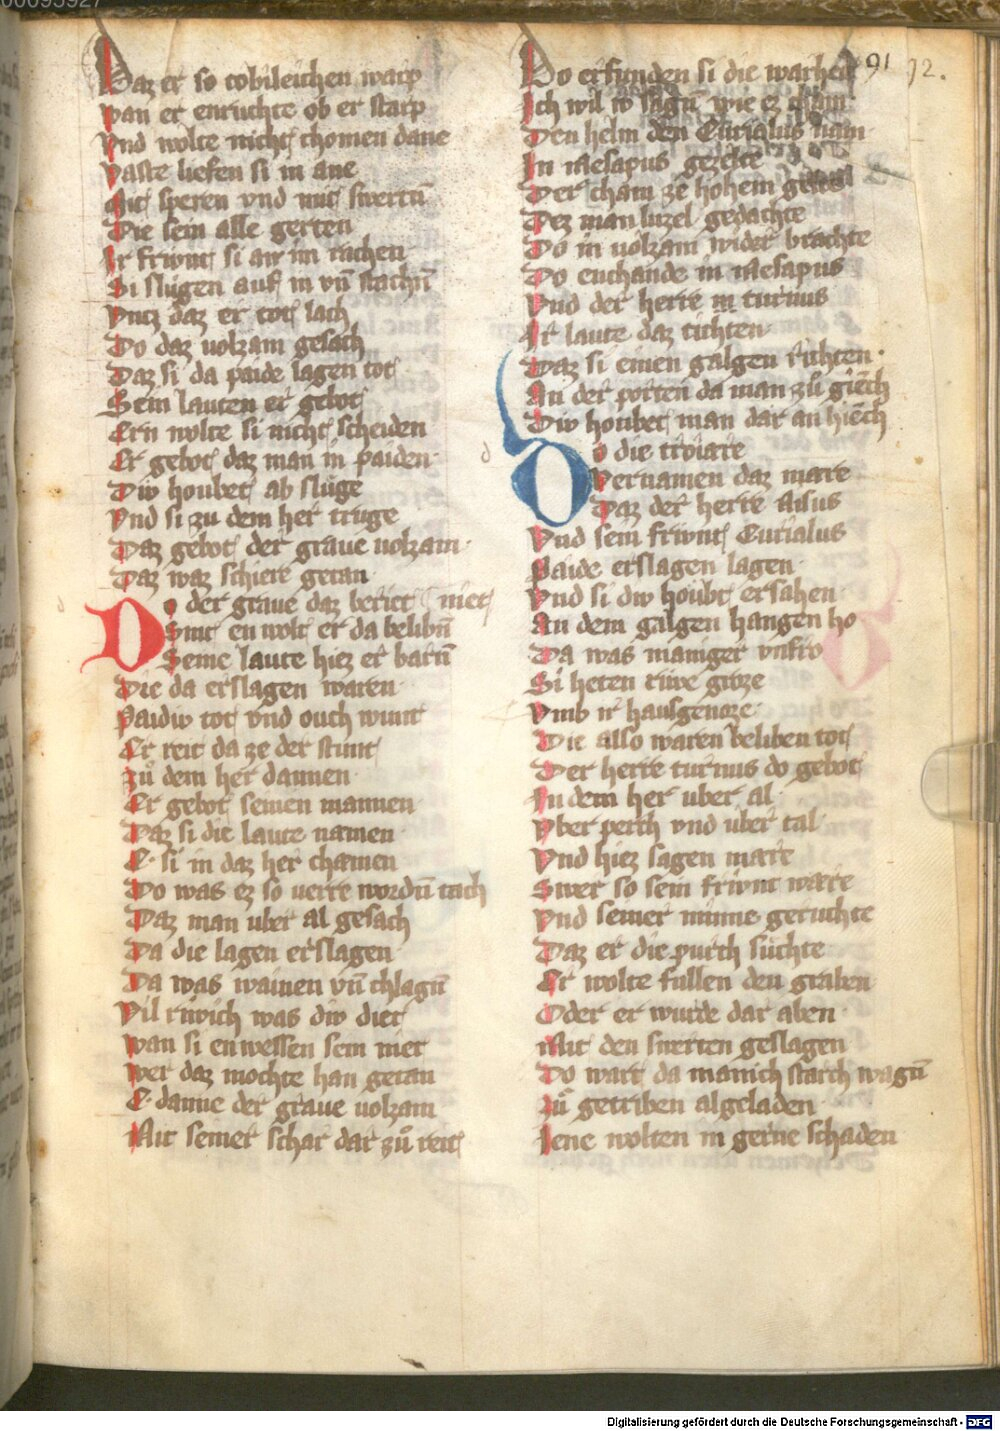 00095927
91 72.
Daz er so tobileichen warp
wan er enruchte ob er starp
Vnd wolte nicht chomen dane
Vaste liefen si in ane
Mit speren vnd mit swertn̄
Die sein alle gerten
Ir friwnt si an im rachen
Si slugen auf in vn̄ stachn̄
Vntz daz er tot lach
Do daz uolzam gesach
Daz si da paide lagen tot
Sein lauten er gebot
Ern wolte si nicht scheiden
Er gebot daz man in paiden
Div houbet ab sluge
Vnd si zu dem her truge
Daz gebot der graue uolzam
Daz waz schiere getan
Do der graue daz beriet
niet
Mit en wolt er da belibn̄
Seine laute hiez er barn̄
Die da erslagen waren
Paidiv tot vnd ouch wunt
Er reit da ze der stunt
Zů dem her dannen
Er gebot seinen mannen
Daz si die laute namen
E si in daz her chamen
Do was ez so uerre wordn̄ tach
Daz man uber al gesach
Da die lagen erslagen
Da was wainen vn̄ chlagn̄
Vil riwich was div diet
wan si en wessen sein niet
wer daz mochte han getan
E danne der graue uolzam
Mit seiner schar dar zů reit
Do erfunden si die warheit
Ich wil iv sagn̄ wie ez cham
Den helm den Eurialus nam
In Mesapus gezelte
Der cham ze hohem gelte
Dez man luzel gedachte
Do in uolzam wider brachte
Do enchande in Mesapus
Vnd der herre in turnus
Ir laute daz tichten
Daz si einen galgen richten
An der porten da man zů giēch
Div houbet man dar an hiēch
Do die troiare
Vernamen daz mare
Daz der herre Nisus
Vnd sein friwnt Eurialus
Paide erslagen lagen
Vnd si div houbt ersahen
An dem galgen hangen ho
Da was maniger vnfro
Si heten riwe groze
Vmb ir hausgenoze
Die also waren beliben tot
Der herre turnus do gebot
In dem her uber al
Vber perch vnd uber tal
Vnd hiez sagen mare
Swer so sein friwnt ware
Vnd seiner minne geruchte
Daz er die purch suchte
Er wolte fullen den graben
Oder er wurde dar aben
Mit den swerten geslagen
Do wart da manich starch wagn̄
Zů getriben algeladen
Jene wolten in gerne schaden
Digitalisierung gefördert durch die Deutsche Forschungsgemeinschaft - DFG